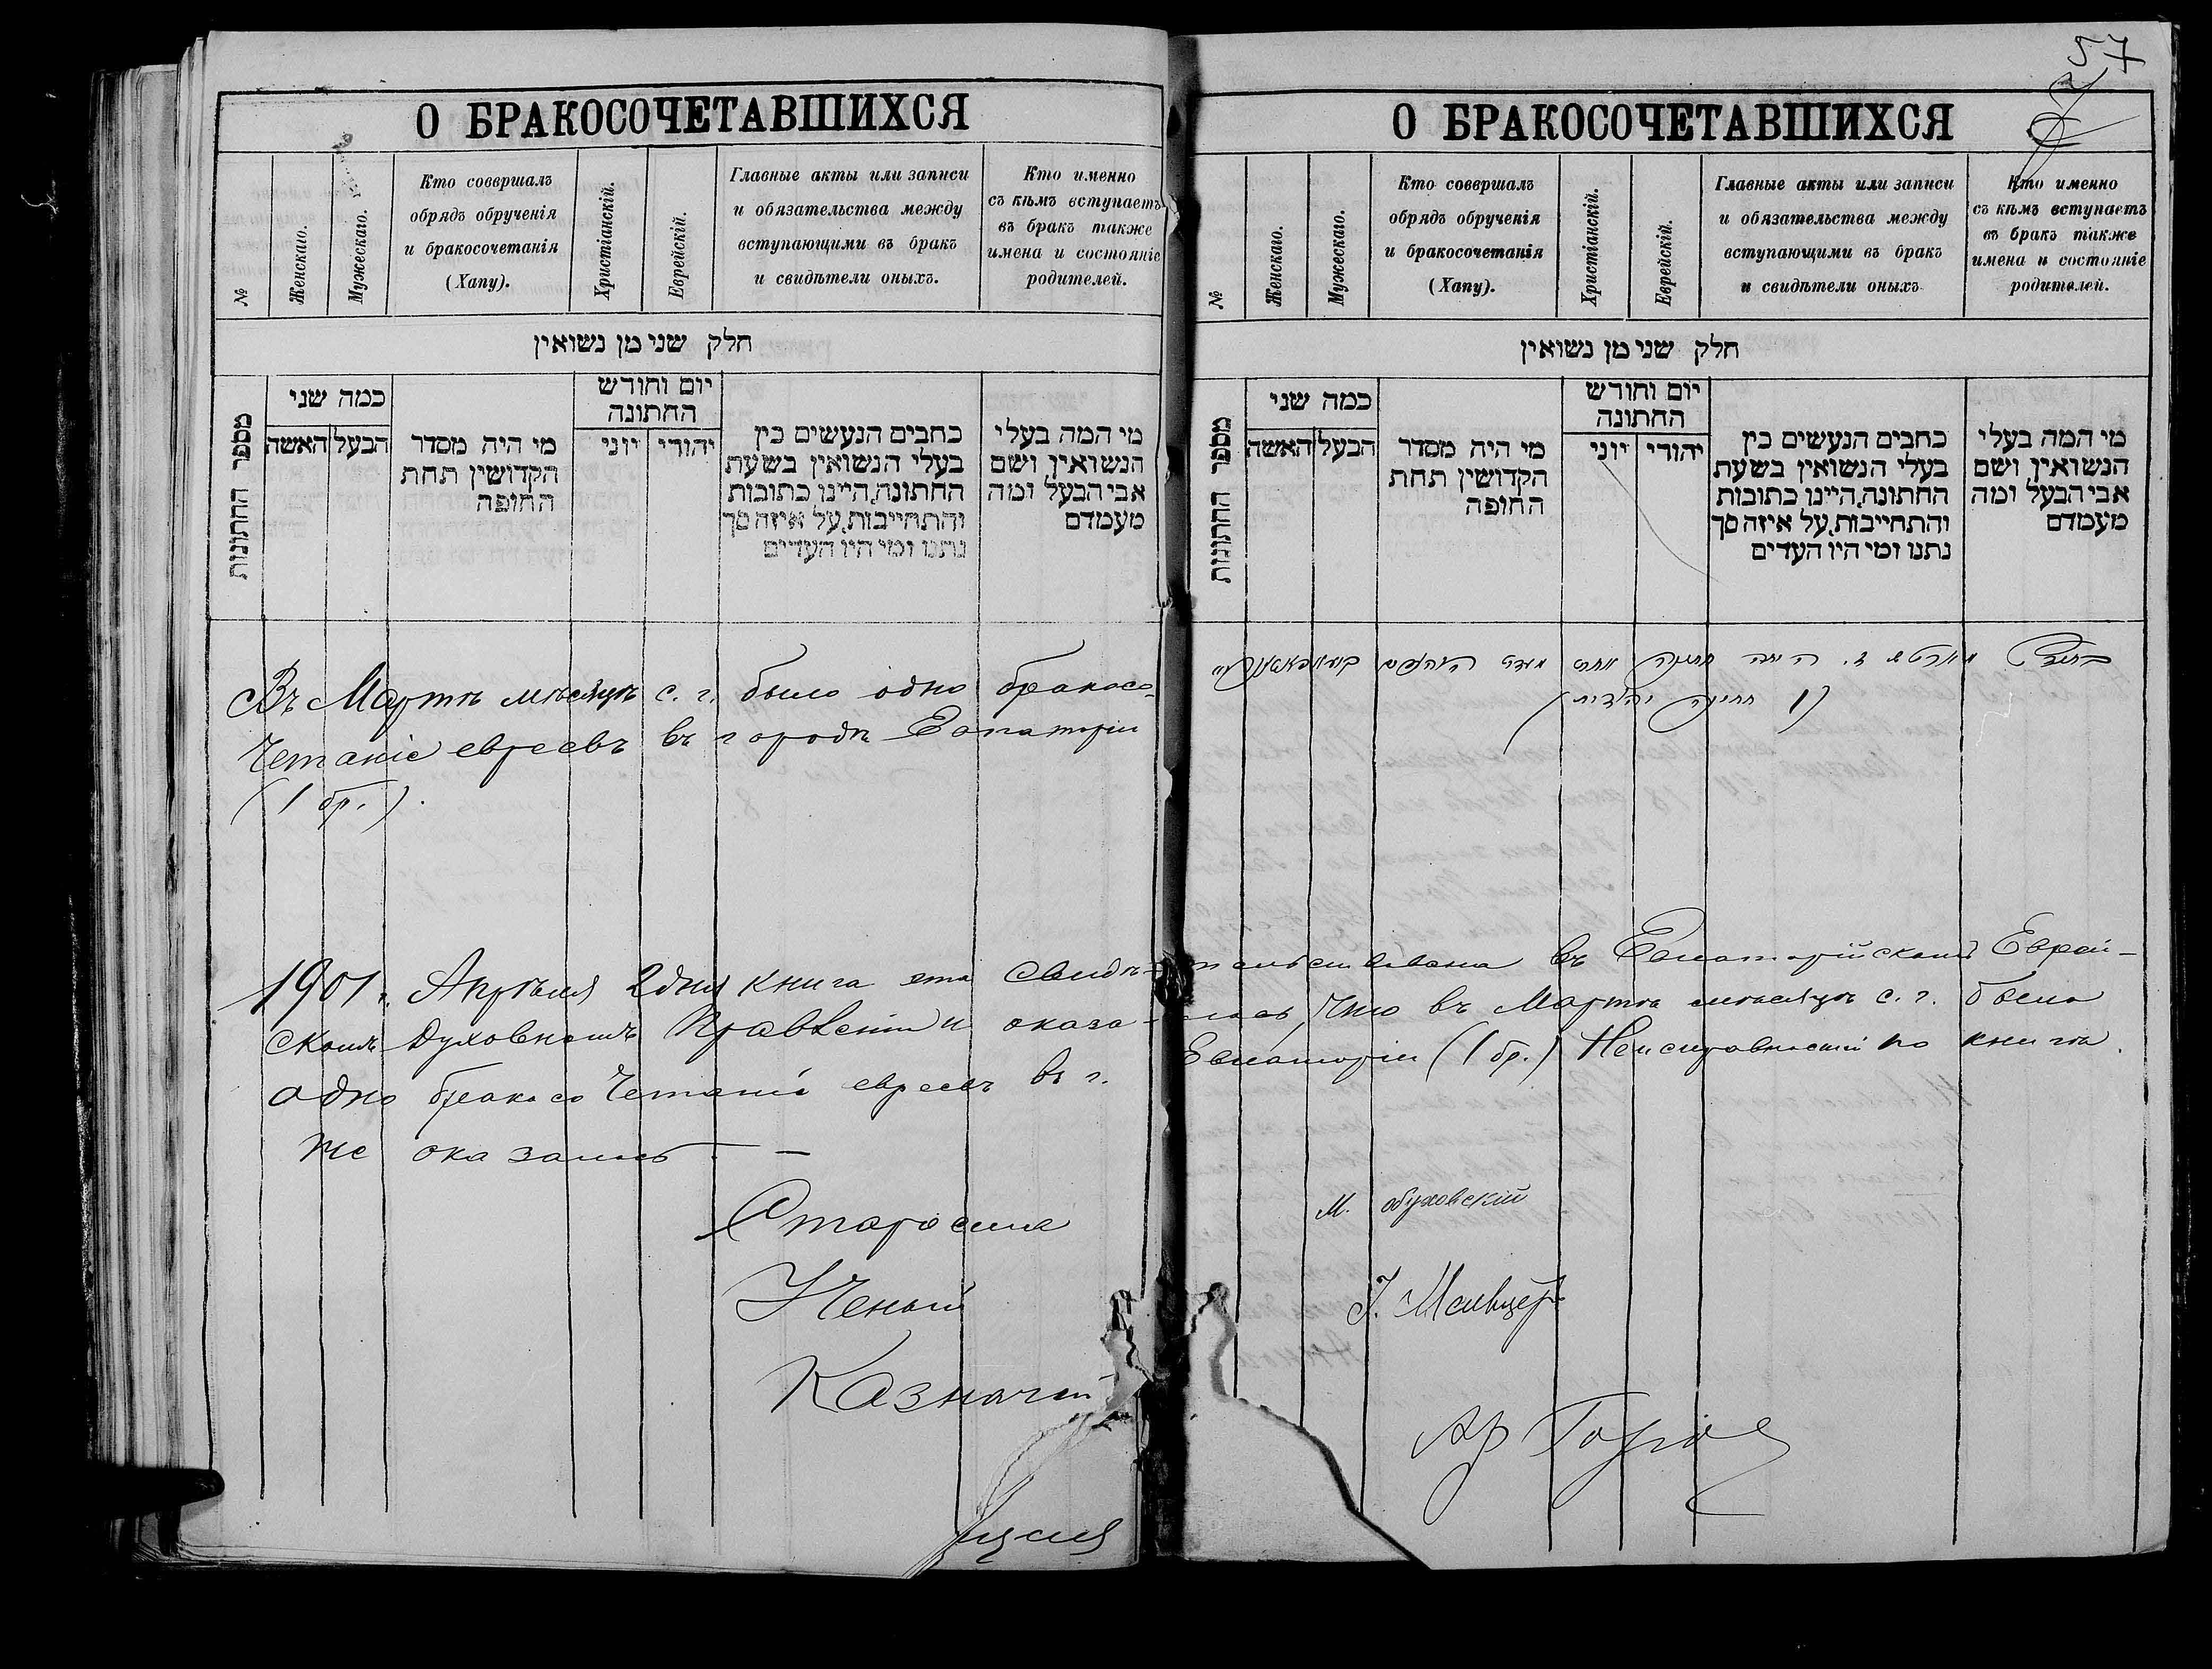 57
О БРАКОСОЧЕТАВШИХСЯ
№
Женскаго.
Мужескаго.
Кто совершалъ
обрядъ обрученія
и бракосочетанія
(Хапу).
Христіанскій.
Еврейскій.
Главные акты или записи
и обязательства между
вступающими въ бракъ
и свидѣтели оныхъ.
Кто именно
съ кѣмъ вступаетъ
въ бракъ также
имена и состояніе
родителей.
חלק שני מן נשואין
מספר החתונות
כמה שני
האשה
הבעל
מי היה מסדר
הקדושין תחת
החופה
יום וחודש
החתונה
יוני
יהודי
כתבים הנעשים בין
בעלי הנשואין בשעת
החתונה, היינו כתובות
והתחייבות, על איזה סך
נתנו ומי היו העדים
מי המה בעלי
הנשואין ושם
אבי הבעל ומה
מעמדם
Въ Мартѣ мѣсяцѣ с. г. было одно бракосо-
четаніе евреевъ въ городѣ Евпаторіи
(1 бр.).
О БРАКОСОЧЕТАВШИХСЯ
№
Женскаго.
Мужескаго.
Кто совершалъ
обрядъ обрученія
и бракосочетанія
(Хапу).
Христіанскій.
Еврейскій.
Главные акты или записи
и обязательства между
вступающими въ бракъ
и свидѣтели оныхъ
Кто именно
съ кѣмъ вступаетъ
въ бракъ также
имена и состояніе
родителей.
חלק שני מן נשואין
מספר החתונות
כמה שני
האשה
הבעל
מי היה מסדר
הקדושין תחת
החופה
יום וחודש
החתונה
יוני
יהודי
כתבים הנעשים בין
בעלי הנשואין בשעת
החתונה, היינו כתובות
והתחייבות, על איזה סך
נתנו ומי היו העדים
מי המה בעלי
הנשואין ושם
אבי הבעל ומה
מעמדם
היתה חתונה
(1 חתונה
1901 г. Апрѣля 2 дня книга эта свидѣтельствована въ Евпаторійскомъ Еврей-
скомъ Духовномъ Правленіи и оказалось, что въ Мартѣ мѣсяцѣ с. г. было
одно бракосочетаніе евреевъ въ г. Евпаторіи (1 бр.) Неисправностей по книгѣ
не оказалось —
Староста М. Обуховскій
Ученый
Казначей